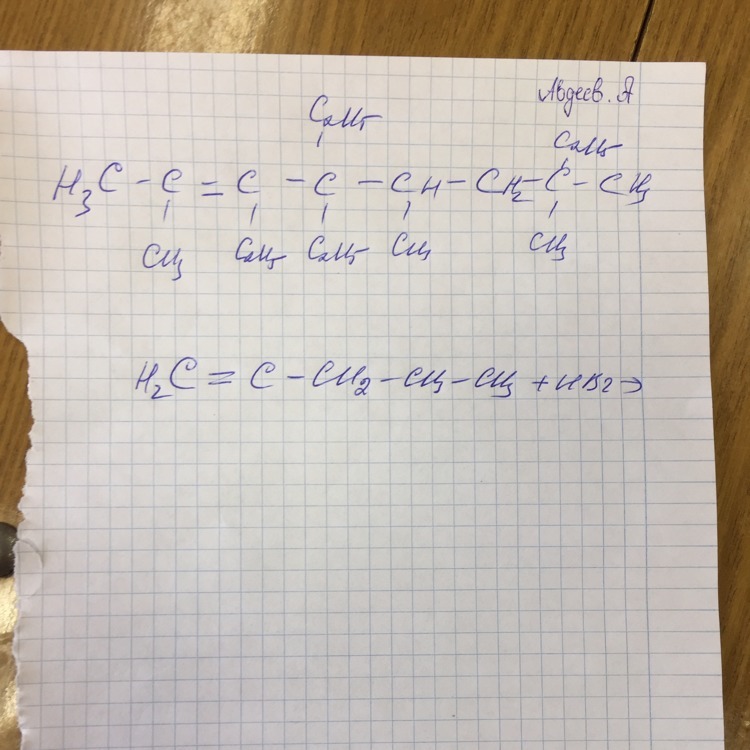 Авдеев. А
C₂H₅ C₂H₅
H₃C - C = C - C - CH - CH₂ - C - CH₃
CH₃ C₂H₅ C₂H₅ CH₃ CH₃
H₂C = C - CH₂ - CH₂ - CH₃ + HBr →